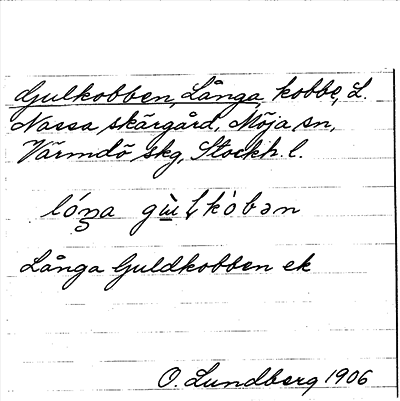 Gulkobben, Långa, kobbe, L.
Nassa skärgård, Möja sn,
Värmdö skg, Stockh. l.
Långa Guldkobben ek
O. Lundberg 1906